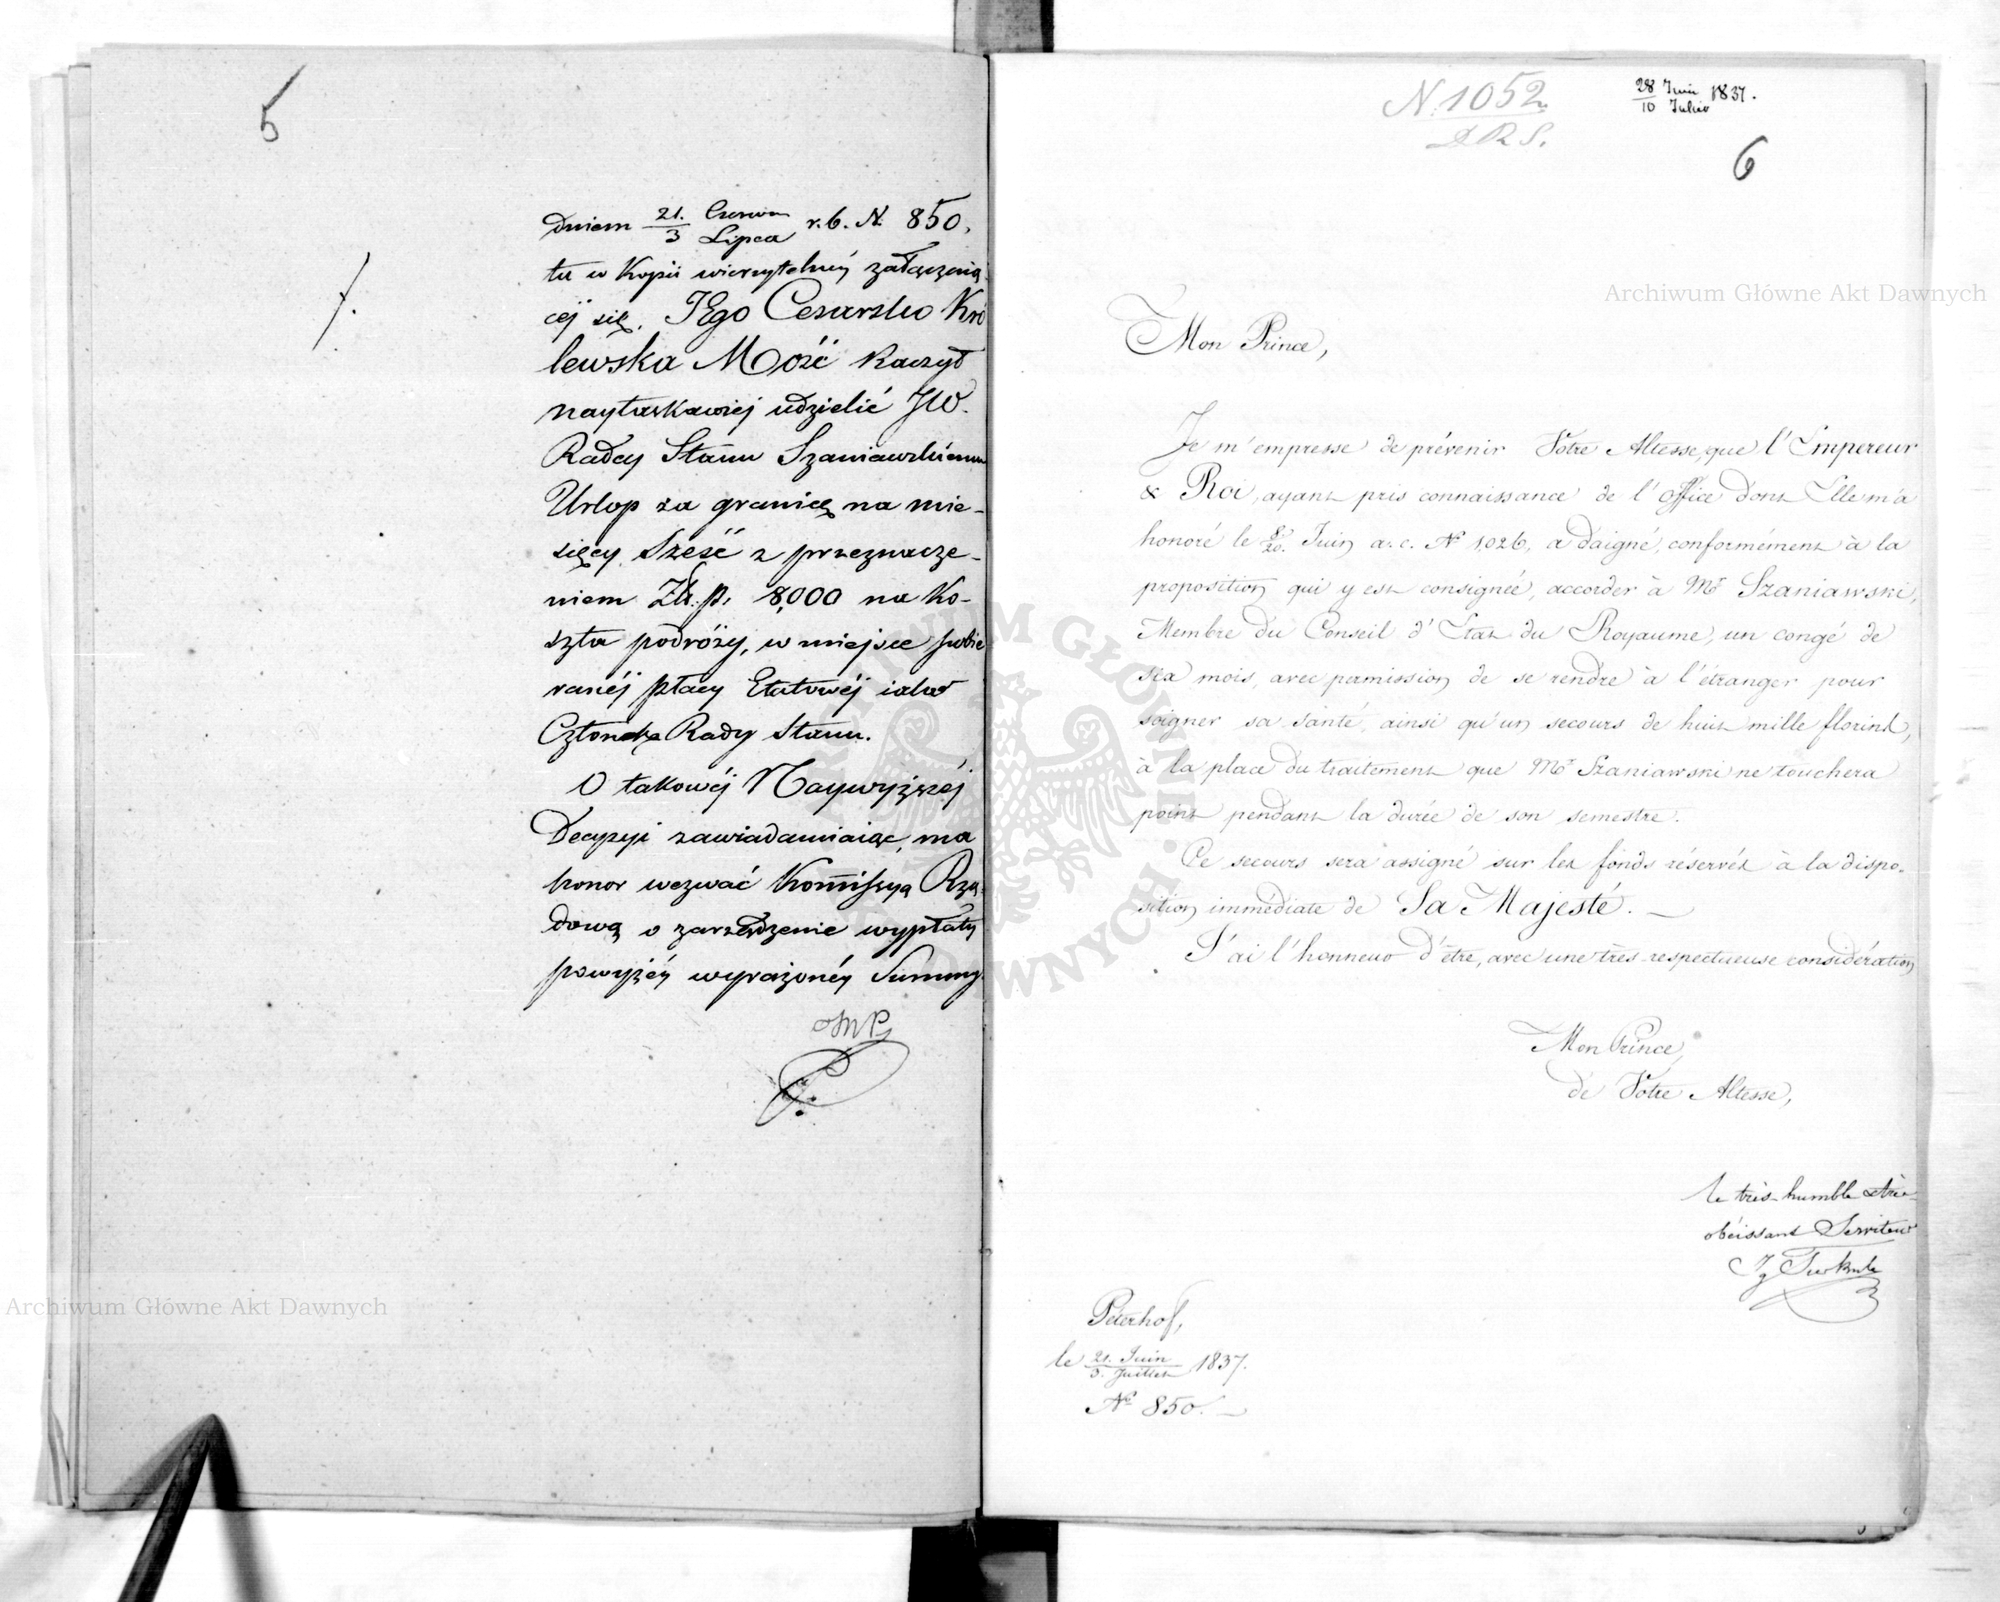 5
dniem 21./3 Czerwca/Lipca r. b. N. 850,
tu w Kopii wierzytelnéj załączaią
céj się, JEgo Cesarsko Kró
lewska Mość raczył
nayłaskawiéj udzielić JW.
Radcy Stanu Szaniawskiemu
Urlop za granicę na mie-
sięcy sześć z przeznacze-
niem Złt. p. 8,000 na Ko-
szta podróży, w miejsce pobie
ranéj płacy Etatowéj iako
Członka Rady Stanu.
O takowéj Naywyższéj
Decyzyi zawiadamiaiąc, ma
honor wezwać Kommissyą Rzą-
dową o zarządzenie wypłaty
powyżéy wyrażonéy Summy.
N. 1052.
28/10 Juni/Julio 1837.
6
Mon Prince,
Je m'empresse de prévenir Votre Altesse, que l'Empereur
& Roi, ayant pris connaissance de l'office dont Elle m'a
honoré le 8/20. Juin a. c. Nº 1,026, a daigné, conformément à la
proposition qui y est consignée, accorder à Mr Szaniawski,
Membre du Conseil d'Etat du Royaume, un congé de
six mois, avec permission de se rendre à l'étranger pour
soigner sa santé, ainsi qu'un secours de huit mille florins,
à la place du traitement que Mr Szaniawski ne touchera
point pendant la durée de son semestre.
Ce secours sera assigné sur les fonds réservés à la dispo-
sition immédiate de Sa Majesté. —
J'ai l'honneur d'être, avec une très-respectueuse considération
Mon Prince,
de Votre Altesse,
le très-humble et très
obéissant Serviteur
Ig Turkułł
Péterhof,
le 21. Juin/3. Juillet 1837.
Nº 850. —
Archiwum Główne Akt Dawnych
Archiwum Główne Akt Dawnych
ARCHIWUM GŁÓWNE AKT DAWNYCH